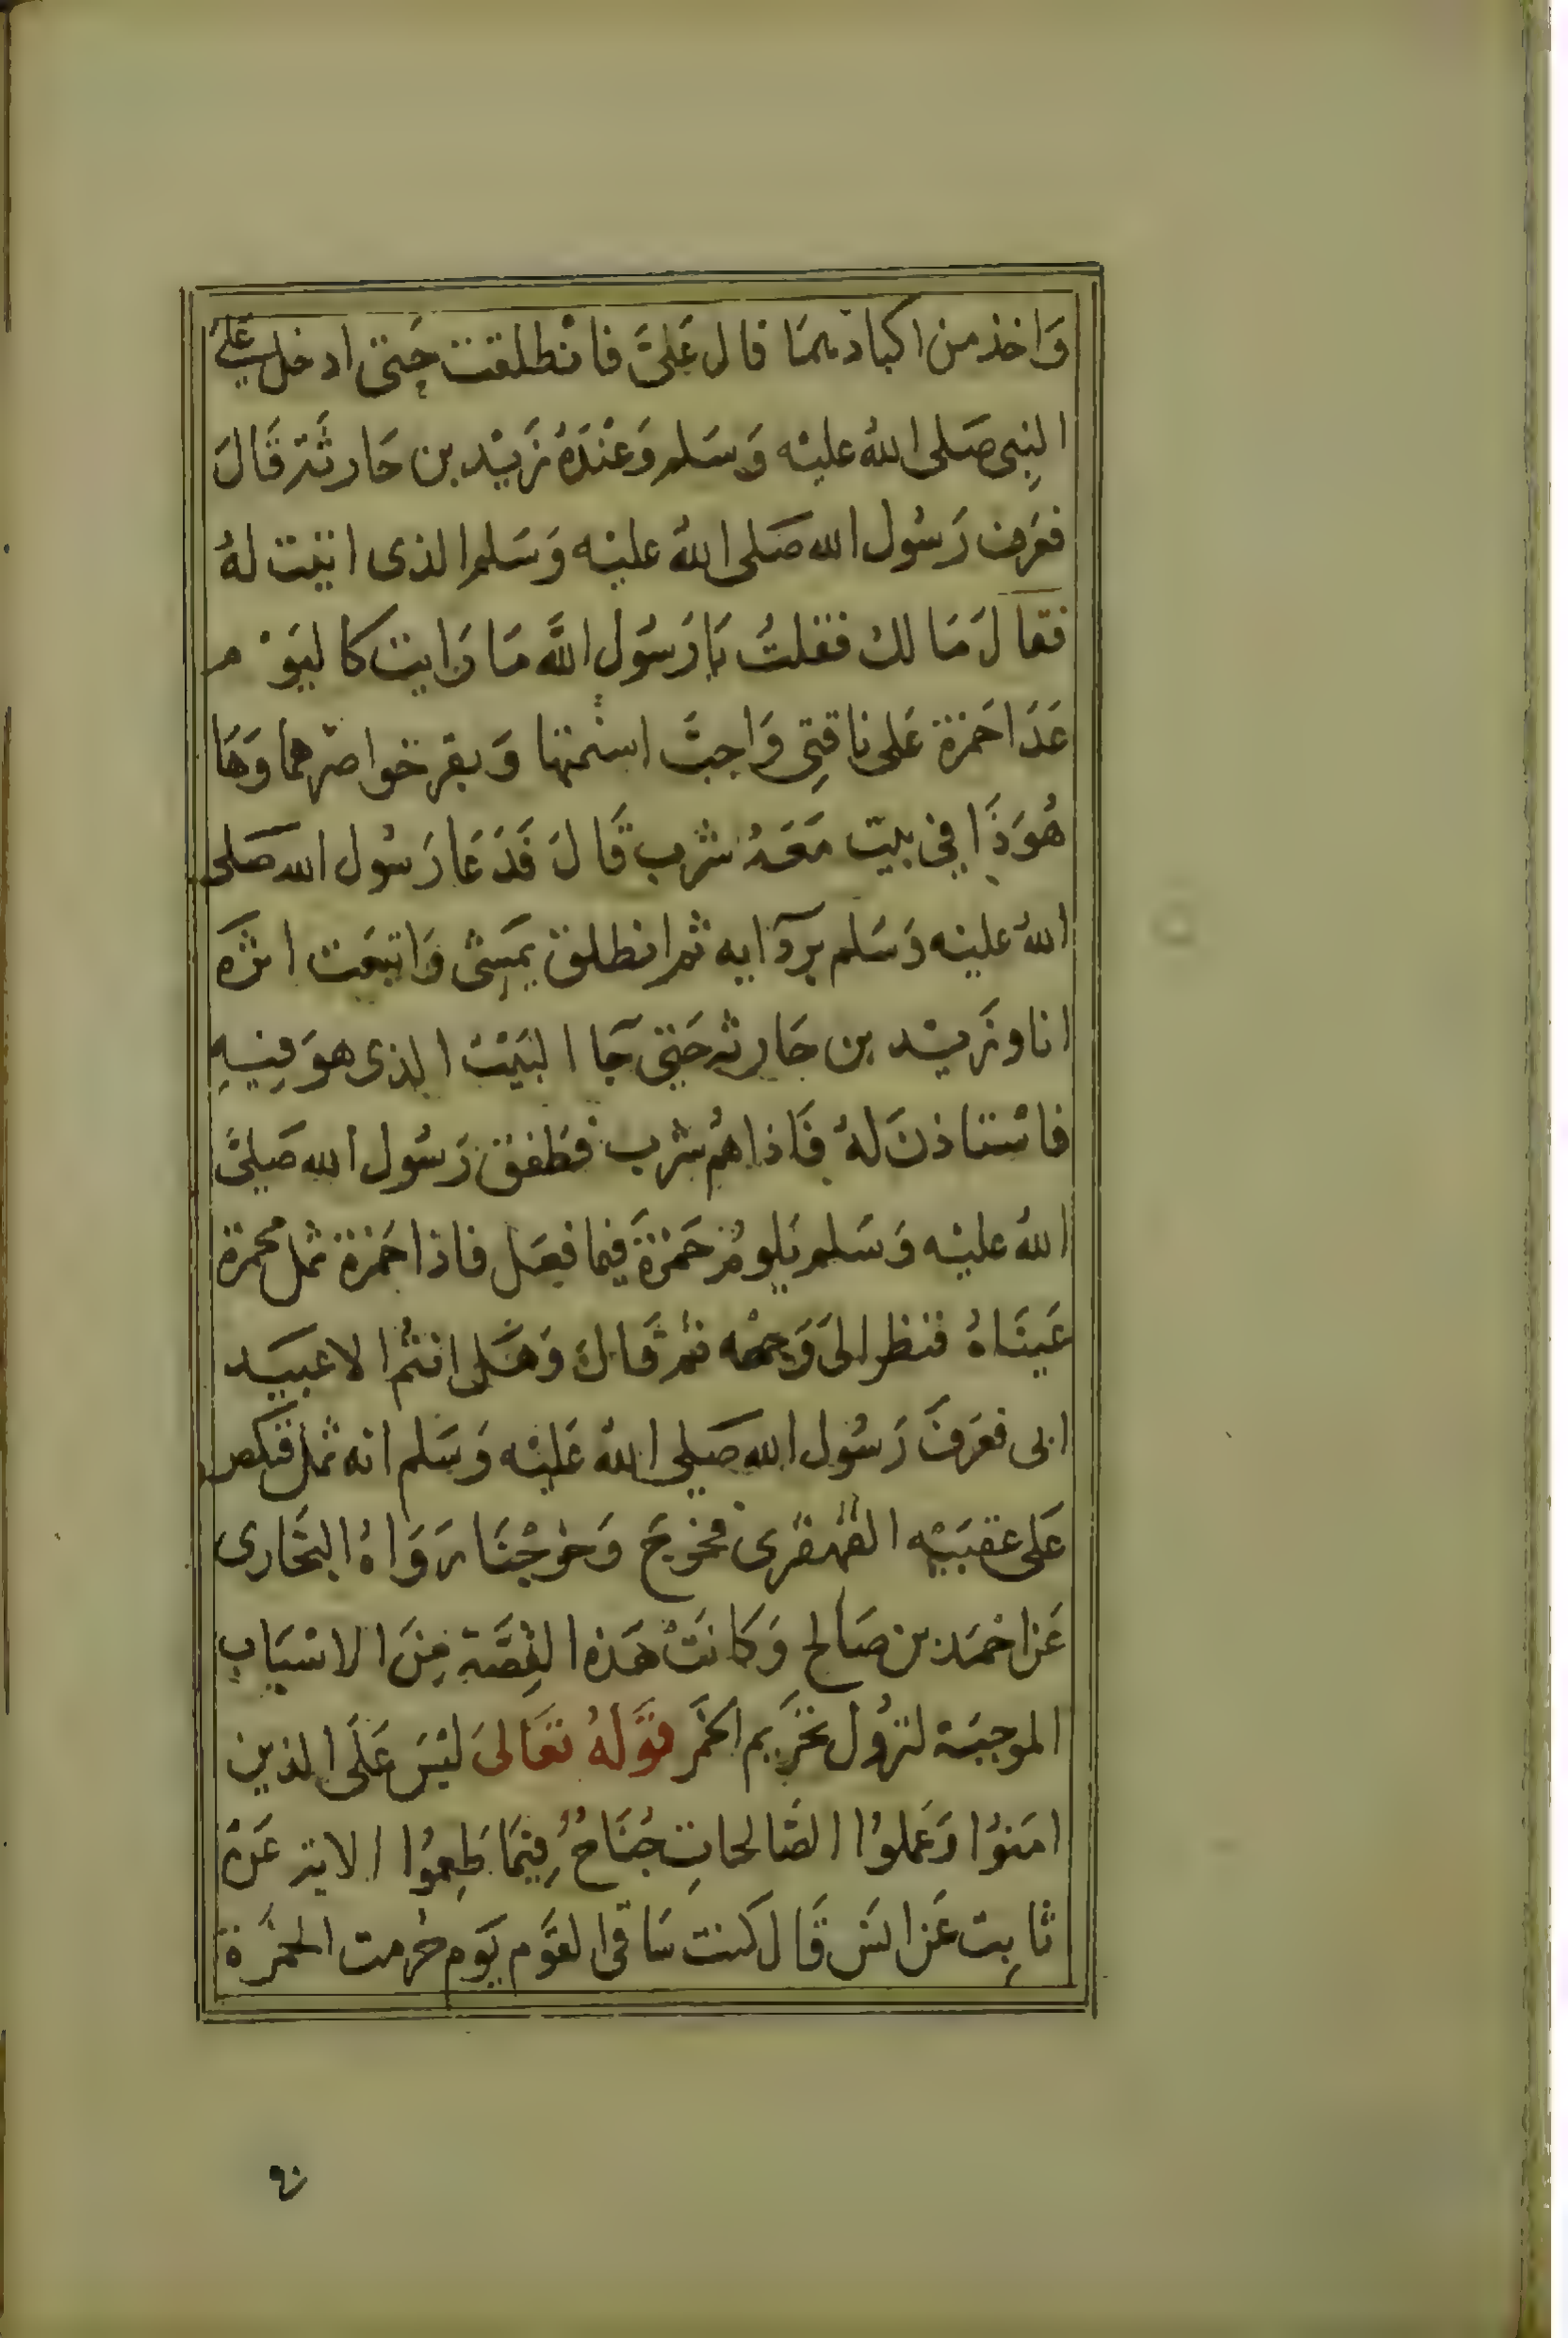 وَاخذ من اكبادهمَا قال عَلىَّ فانْطلقت حَتى ادخل على
النبِى صَلى اللهُ عليْه وَسَلم وَعنْدَهُ زَيْد بن حَارثَة قَالَ
فعَرف رَسُول الله صَلى اللهُ عليْه وَسَلم الذى اتيْت لهُ
فقَالَ مَا لك فقلتُ يَا رَسُول اللَّه مَا رَايت كاليَوْم
عَدَا حَمزة عَلى ناقتِى وَاجبَّ اسْنمتها وَبقر خواصرهما وَهَا
هُوَ ذَا فِي بيت مَعَهُ شرب قَالَ فَدَعَا رَسُول الله صَلى
اللهُ عليْه وَسَلم بردَآيه ثم انطلق يَمِشى وَاتبعَت اثرَه
انا وزَيْد بن حَارثه حَتى جَآ البَيْت الذى هوَ فِيْهِ
فاسْتاذنَ لهُ فَاذا هُم شرب فطَفق رَسُول الله صَلىَّ
اللهُ عليْه وَسَلم يَلومُ حَمْزَةَ فيما فعَل فاذا حَمزة ثمل محمرة
عَينَاهُ فنظر الىَ وَجهْه ثم قَالَ وَهَل انتُم الا عبيَد
ابى فعَرفَ رَسُول الله صَلى اللهُ عَليْه وَسَلم انه ثمل فنكص
عَلى عقبَيْه القهْقرى فخرجَ وَخرجْنَا رَوَاهُ البخَارى
عَن احْمَد بن صَالح وَكانَتْ هَذه القِصَّة مِنَ الاسْبَابِ
الموجبَة لنزوُل تحْرَيم الخمَر قوَّلهُ تعَالىَ ليْسَ عَلَى الذين
امَنوُا وَعَملوُا الصَّالحاتِ جُنَاحٌ فِيْمَا طَعِموُا الاية عَنْ
ثابِت عَن انَس قَال كنت سَاقى القَوَّم يَوم حُرمت الخمَرة